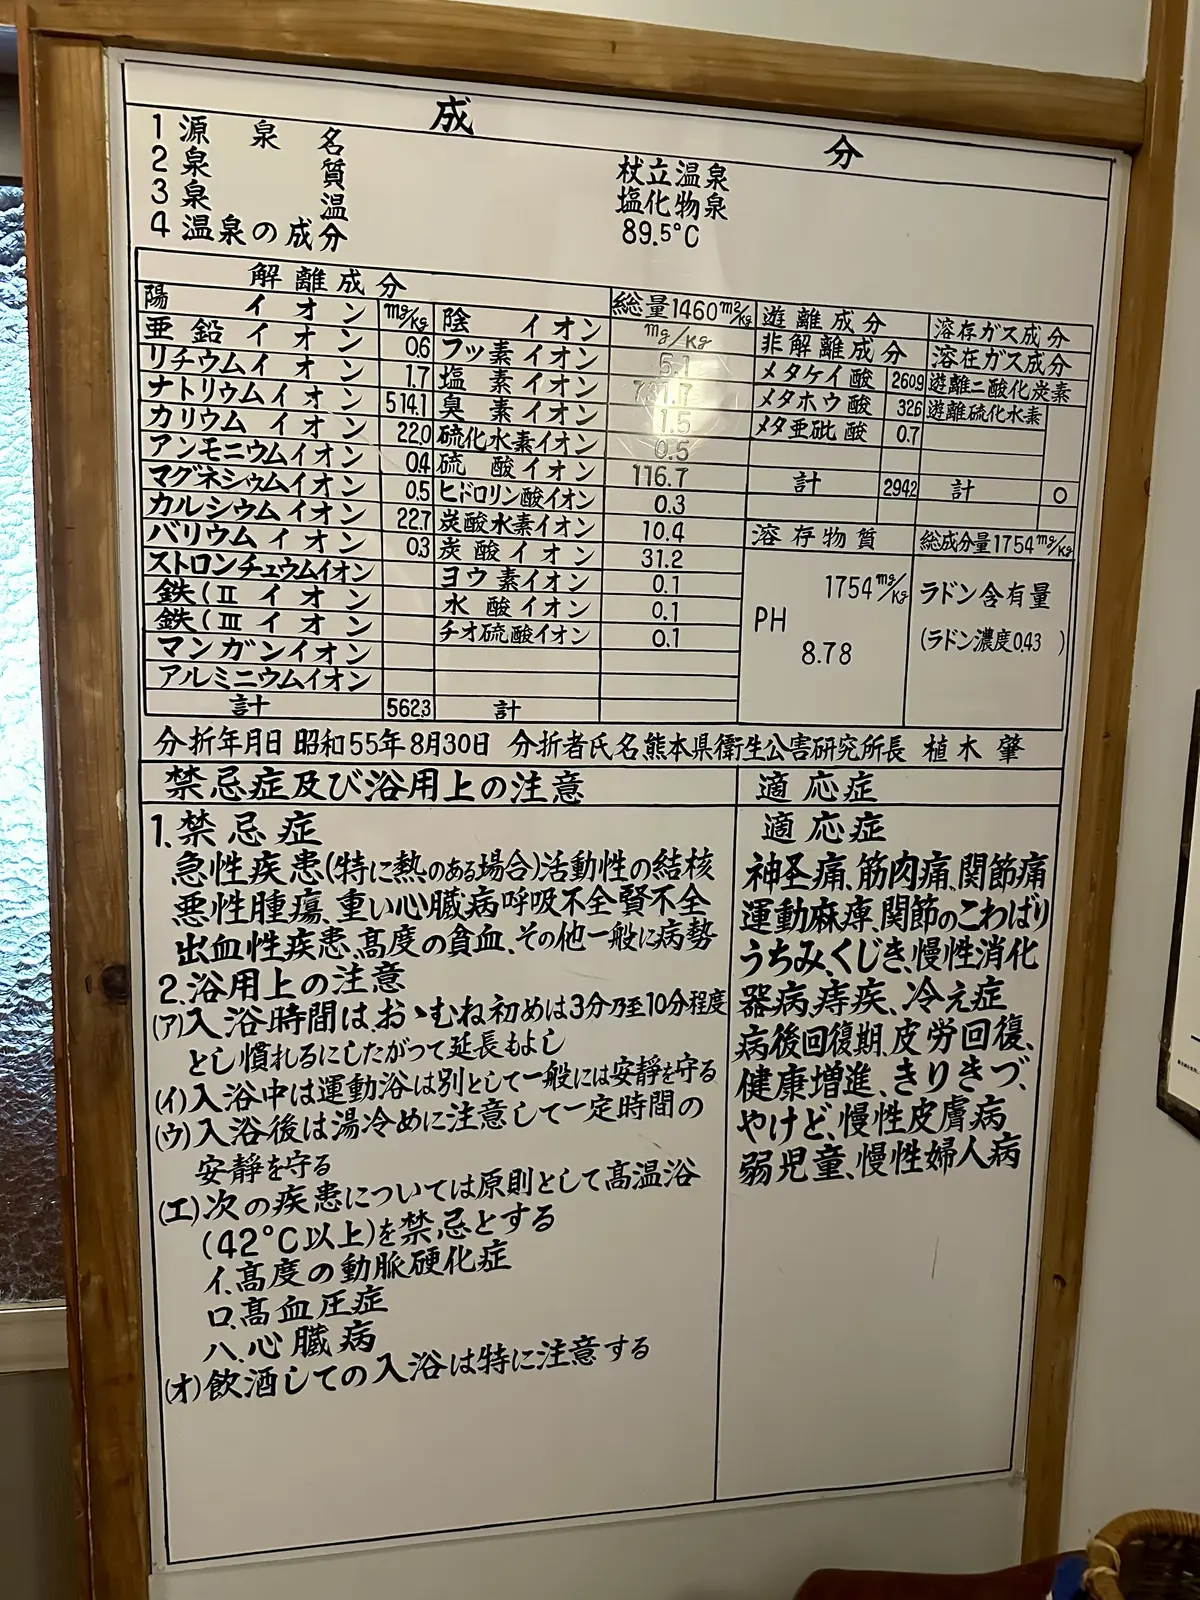 成分
1 源泉名 杖立温泉
2 泉質 塩化物泉
3 泉温 89.5°C
4 温泉の成分
解離成分 総量1460mg/kg 遊離成分 溶存ガス成分
陽イオン mg/kg 陰イオン mg/kg 非解離成分 溶在ガス成分
亜鉛イオン 0.6 フッ素イオン 5.1 メタケイ酸 260.9 遊離二酸化炭素
リチウムイオン 1.7 塩素イオン メタホウ酸 32.6 遊離硫化水素
ナトリウムイオン 514.1 臭素イオン 1.5 メタ亜砒酸 0.7
カリウムイオン 22.0 硫化水素イオン 0.5
アンモニウムイオン 0.4 硫酸イオン 116.7 計 294.2 計 0
マグネシウムイオン 0.5 ヒドロリン酸イオン 0.3
カルシウムイオン 22.7 炭酸水素イオン 10.4 溶存物質 総成分量1754mg/kg
バリウムイオン 0.3 炭酸イオン 31.2 1754mg/kg ラドン含有量
ストロンチュウムイオン ヨウ素イオン 0.1 PH (ラドン濃度0.43 )
鉄(Ⅱイオン 水酸イオン 0.1 8.78
鉄(Ⅲイオン チオ硫酸イオン 0.1
マンガンイオン
アルミニウムイオン
計 562.3 計
分折年月日 昭和55年8月30日 分折者氏名熊本県衛生公害研究所長 植木 肇
禁忌症及び浴用上の注意
1.禁忌症
急性疾患(特に熱のある場合)活動性の結核
悪性腫瘍、重い心臓病呼吸不全賢不全
出血性疾患、高度の貧血、その他一般に病勢
2.浴用上の注意
(ア)入浴時間は、おゝむね初めは3分乃至10分程度
とし慣れるにしたがって延長もよし
(イ)入浴中は運動浴は別として一般には安静を守る
(ウ)入浴後は湯冷めに注意して一定時間の
安静を守る
(エ)次の疾患については原則として高温浴
(42°C以上)を禁忌とする
イ.高度の動脈硬化症
ロ.高血圧症
ハ.心臓病
(オ)飲酒しての入浴は特に注意する
適応症
適応症
神圣痛、筋肉痛、関節痛
運動麻痺、関節のこわばり
うちみ、くじき、慢性消化
器病、痔疾、冷え症
病後回復期、皮労回復、
健康増進、きりきづ、
やけど、慢性皮膚病
弱児童、慢性婦人病